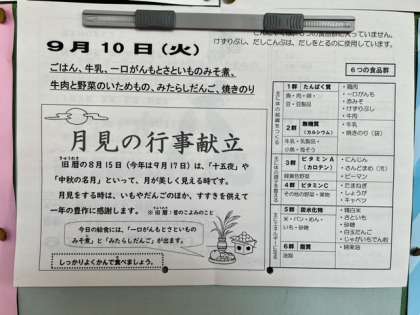 入っていません。
けずりぶし、だしこんぶは、だしをとるのに使用しています。
9月10日(火)
ごはん、牛乳、一口がんもとさといものみそ煮、
牛肉と野菜のいためもの、みたらしだんご、焼きのり
月見の行事献立
きゅうれき
旧暦の8月15日(今年は9月17日)は、「十五夜」や
「中秋の名月」といって、月が美しく見える時です。
月見をする時は、いもやだんごのほか、すすきを供えて
一年の豊作に感謝します。 ※旧暦:昔のこよみのこと
今日の給食には、「一口がんもとさといもの
みそ煮」と「みたらしだんご」が出ます。
しっかりよくかんで食べましょう。
6つの食品群
主に体の組織をつくる
1群 たんぱく質
魚・肉・卵・
豆・豆製品
・鶏肉
・一口がんも
・赤みそ
・けずりぶし
・牛肉
2群 無機質
(カルシウム)
牛乳・乳製品・
小魚・海そう
・牛乳
・焼きのり(袋)
主に体の調子を整える
3群 ビタミンA
(カロテン)
緑黄色野菜
・にんじん
・さんどまめ(冷)
・ピーマン
4群 ビタミンC
その他の野菜・果物
・たまねぎ
・しょうが
・キャベツ
5群 炭水化物
米・パン・めん・
いも・砂糖
・精白米
・さといも
・砂糖
・白玉だんご
・じゃがいもでん粉
6群 脂質
油脂
・綿実油